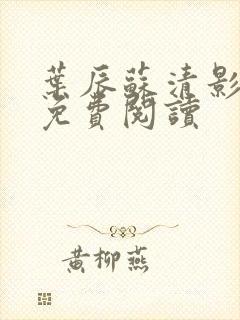 葉辰蘇清影
免費閱讀
黃柳燕